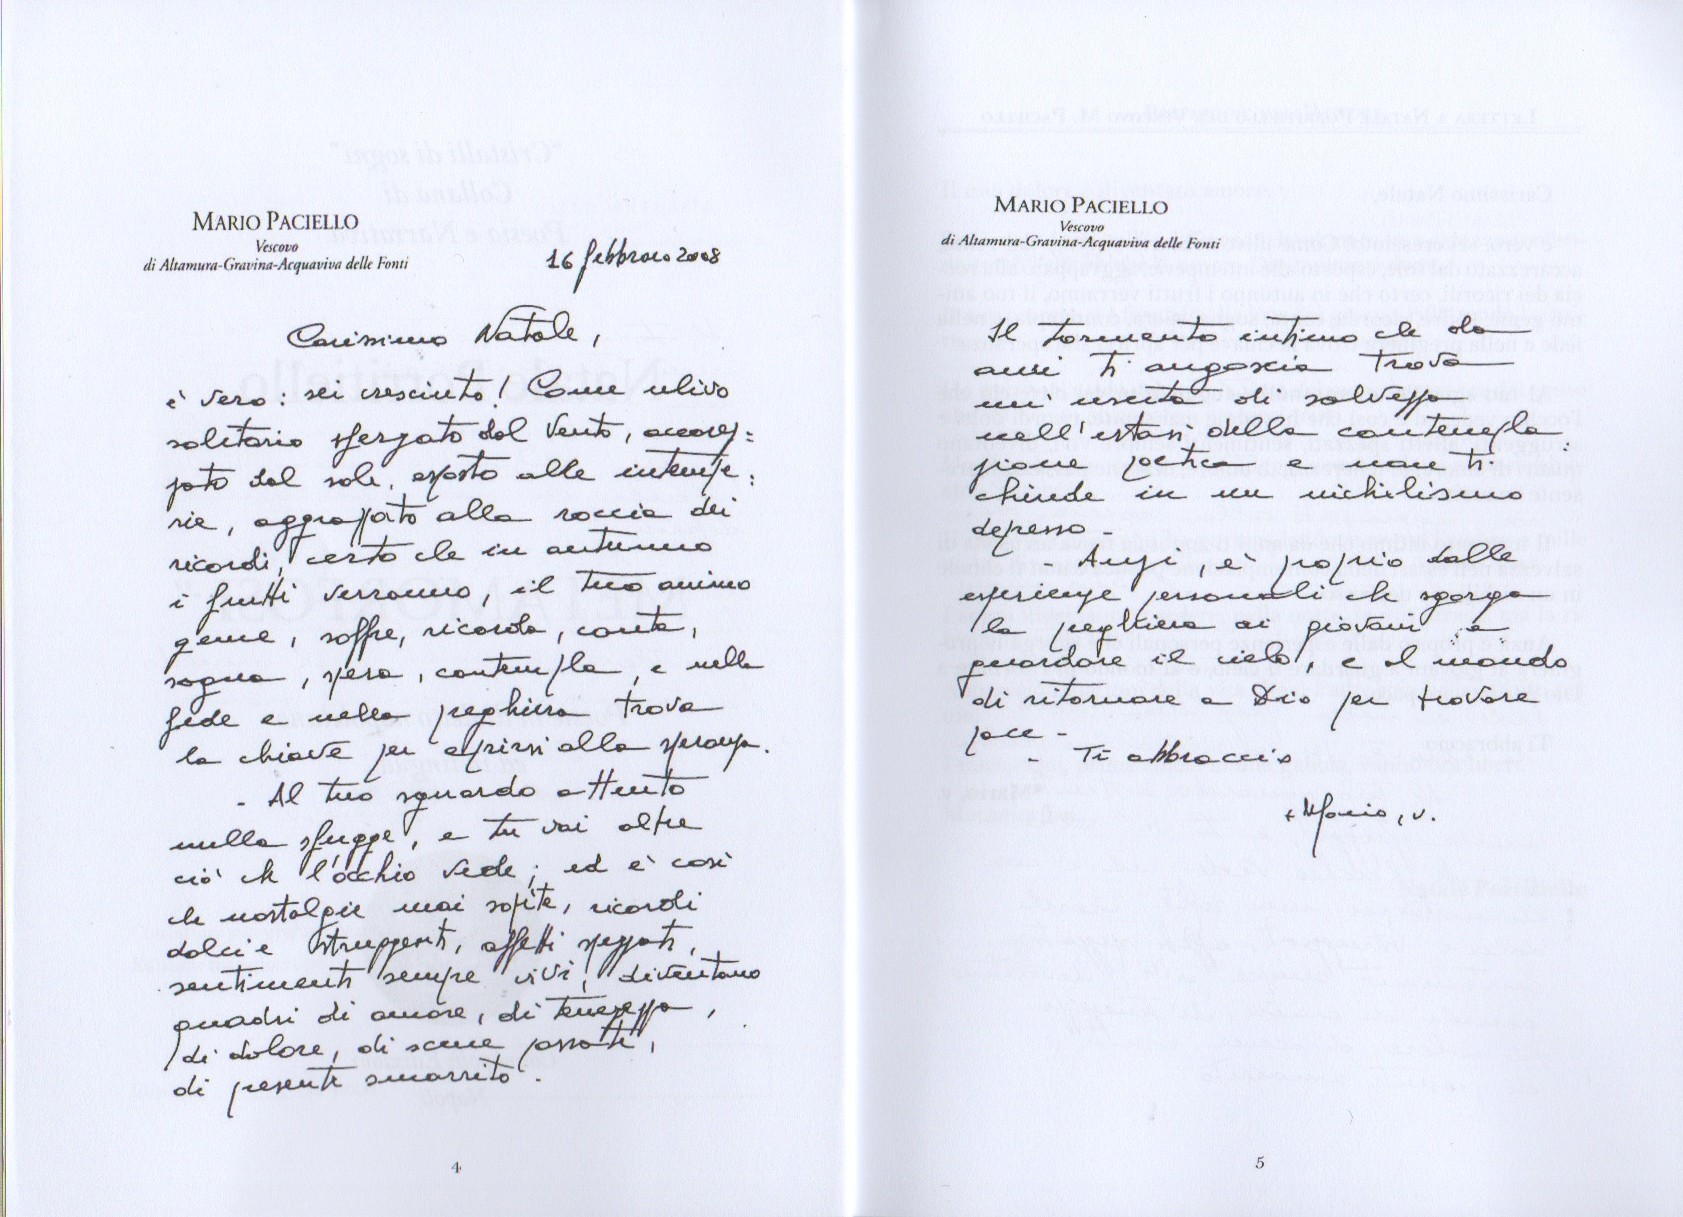 MARIO PACIELLO
Vescovo
di Altamura-Gravina-Acquaviva delle Fonti
16 febbraio 2008
Carissimo Natale,
è vero: sei cresciuto! Come ulivo
solitario sferzato dal vento, accarez=
zato dal sole, esposto alle intempe=
rie, aggrappato alla roccia dei
ricordi, certo che in autunno
i frutti verranno, il tuo animo
geme, soffre, ricorda, canta,
sogna, spera, contempla, e nella
fede e nella preghiera trova
la chiave per aprirsi alla speranza.
- Al tuo sguardo attento
nulla sfugge, e tu vai oltre
ciò che l'occhio vede; ed è così
che nostalgie mai sopite, ricordi
dolci e struggenti, affetti spezzati,
sentimenti sempre vivi, diventano
quadri di amore, di tenerezza,
di dolore, di scene passate,
di presente smarrito.
4
MARIO PACIELLO
Vescovo
di Altamura-Gravina-Acquaviva delle Fonti
Il tormento intimo che da
anni ti angoscia trova
un'uscita di salvezza
nell'estasi della contempla
zione poetica e non ti
chiude in un nichilismo
depresso -
Anzi, è proprio dalle
esperienze personali che sgorga
la preghiera ai giovani a
guardare il cielo, e al mondo
di ritornare a Dio per trovare
pace -
- Ti abbraccio
+ Mario, v.
5